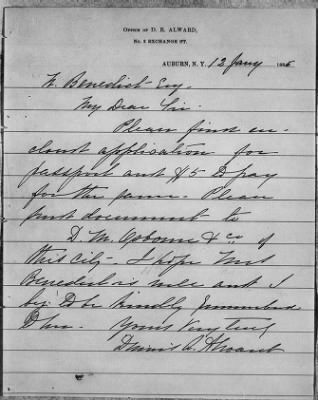 OFFICE OF D. R. ALWARD,
No. 2 EXCHANGE ST.
AUBURN, N.Y. 12 Jany 1885
N. Benedict Esq.
My Dear Sir.
Please find en-
closed application for
passport and $5 to pay
for the same. Please
send document to
D. M. Osborne & Co of
this city. I hope Mrs
Benedict is well and I
beg to be kindly remembered
to her. Yours Very truly
Dennis R. Alward